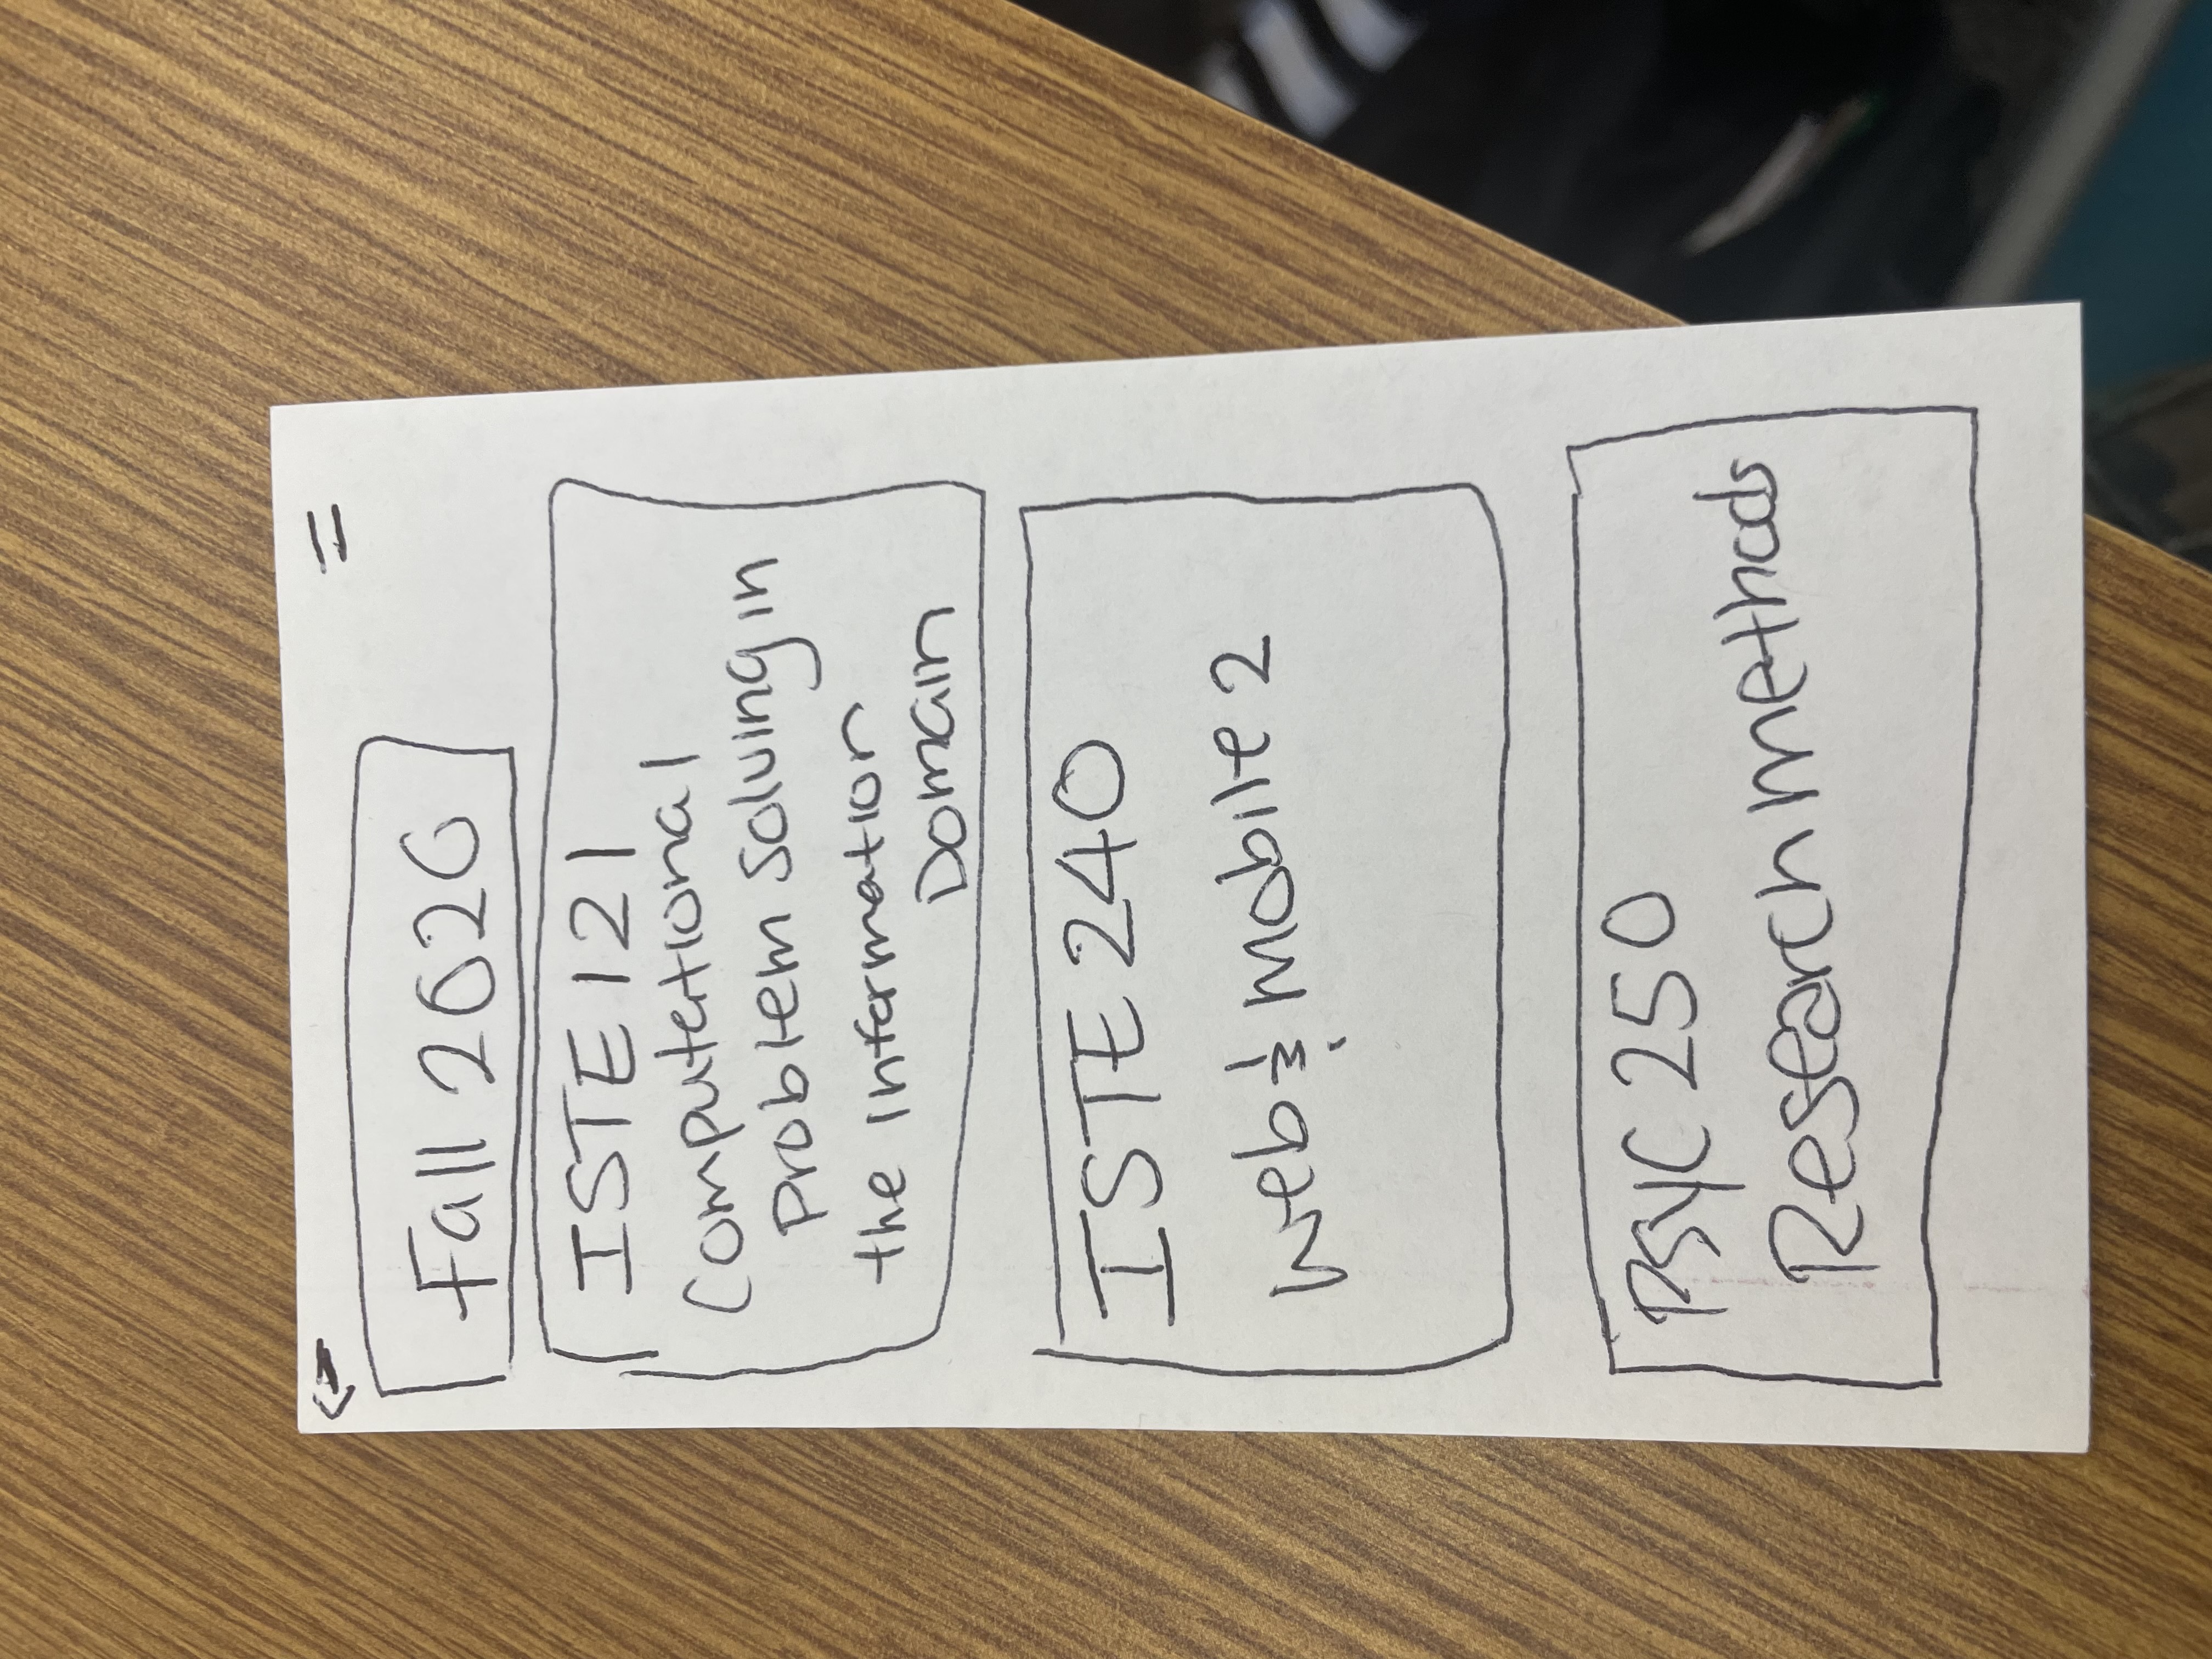 Fall 2026
ISTE 121
Computational
Problem Solving in
the Information
Domain
ISTE 240
Web & Mobile 2
PSYC 250
Research methods